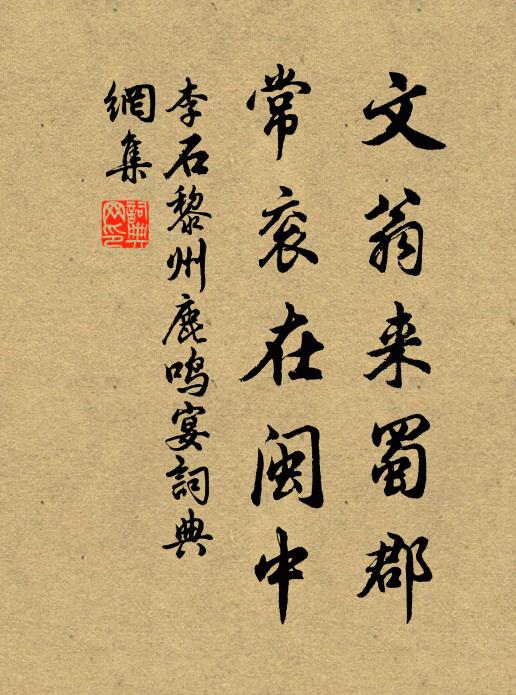 文翁来蜀郡
常衮在闽中
李石黎州鹿鸣宴詞典
網集
詞典網印